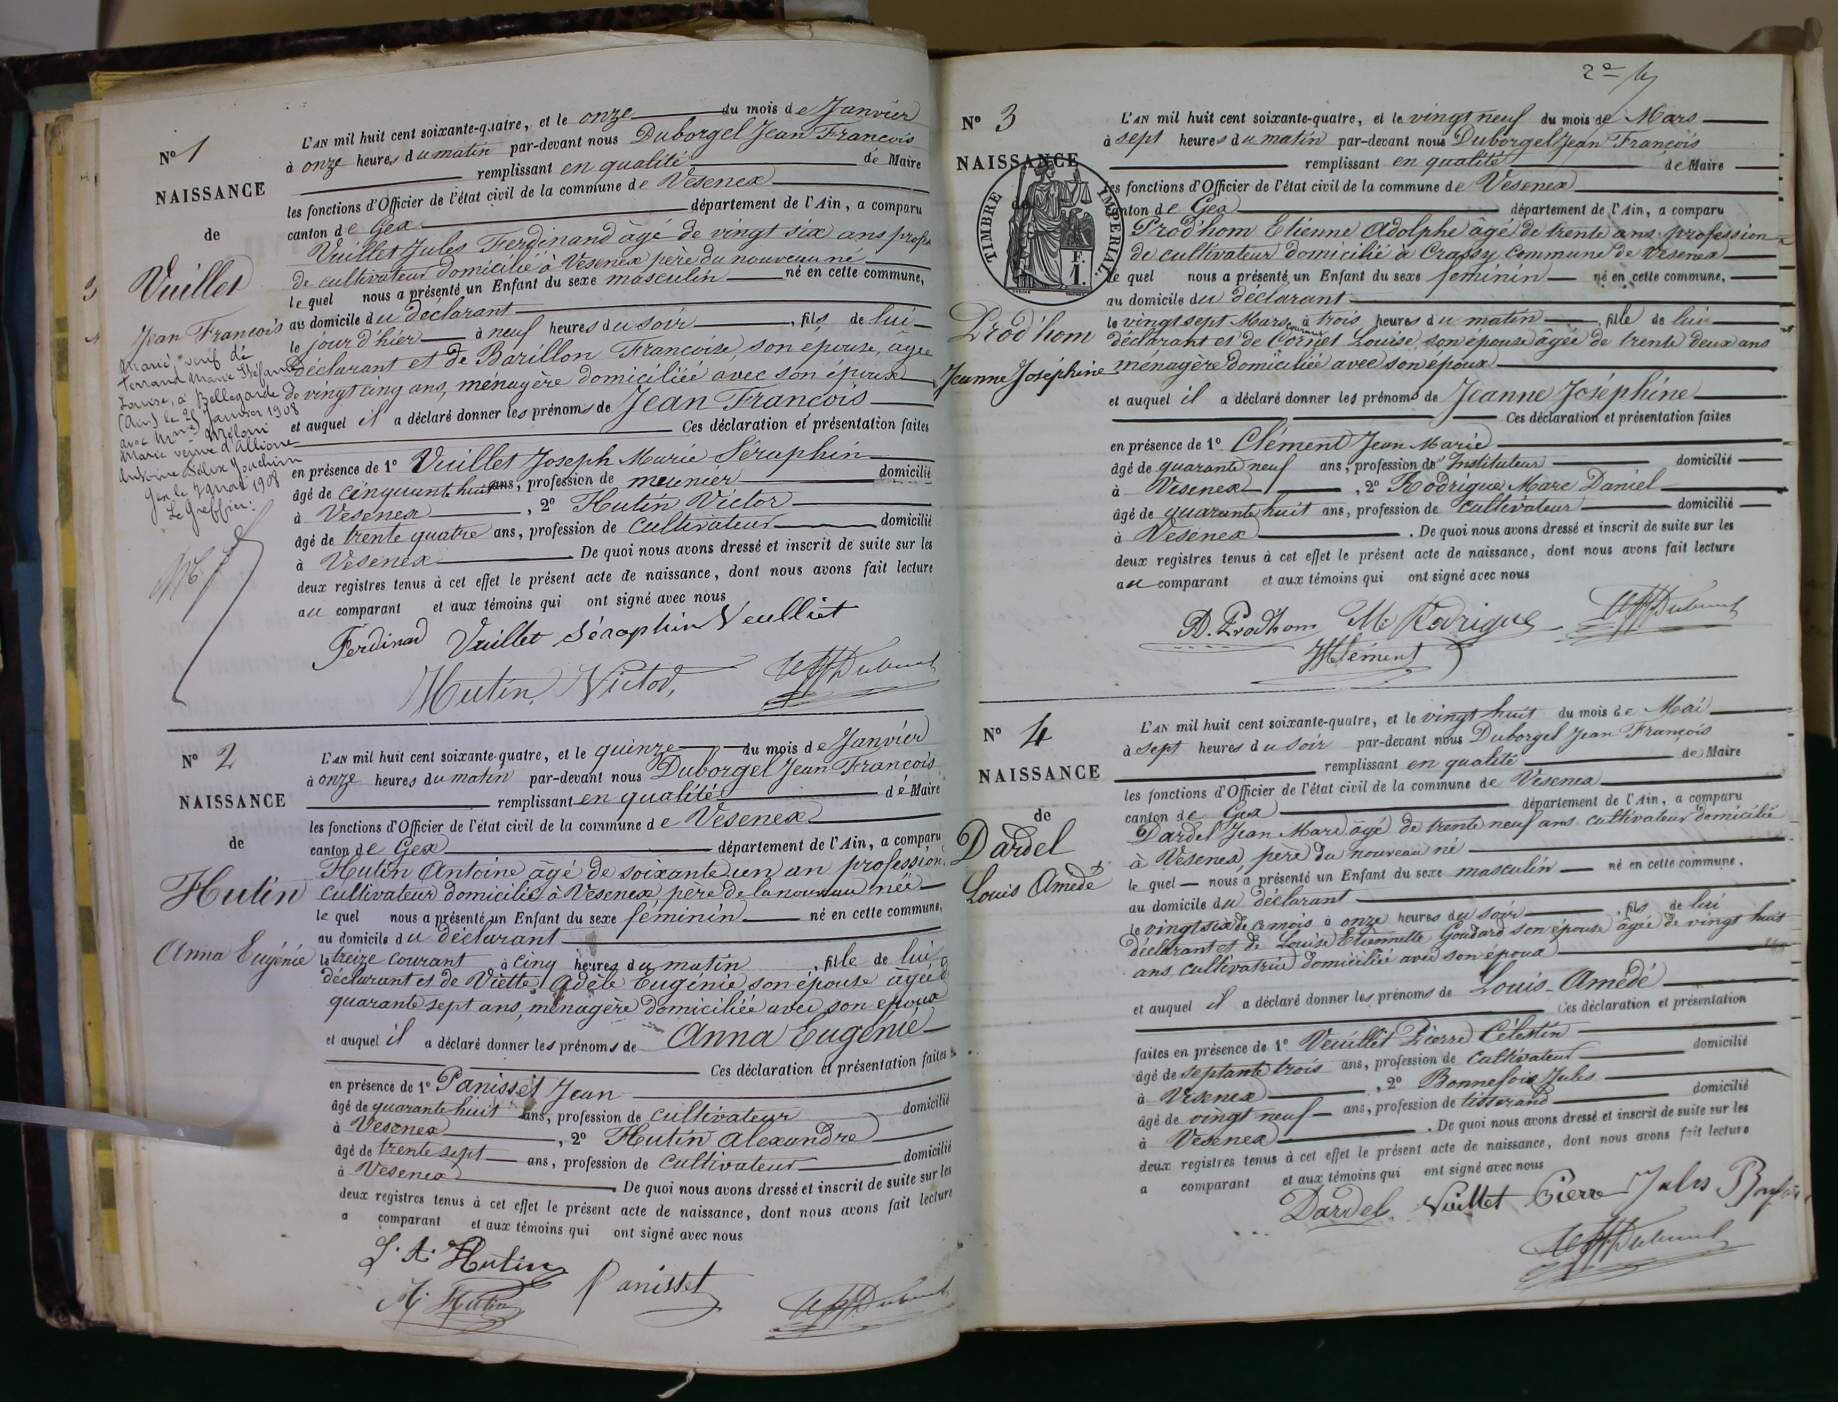 N° 1
NAISSANCE
de
Vuillet
Jean François
marié, veuf de
Marie Stéfanie
Louise, à Bellegarde
(Ain) le 25 Janvier 1908
avec Mme
Marie veuve d'Allione
Antoine Félix Joachim
Gex le 7 mars 1908
Le Greffier:
L'AN mil huit cent soixante-quatre, et le onze du mois de Janvier
à onze heures du matin par-devant nous Duborgel Jean François
remplissant en qualité de Maire
les fonctions d'Officier de l'état civil de la commune de Vesenex
canton de Gex département de l'Ain, a comparu
Vuillet Jules Ferdinand âgé de vingt six ans profes
de cultivateur domicilié à Vesenex père du nouveau né
le quel nous a présenté un Enfant du sexe masculin né en cette commune,
au domicile du déclarant
le jour d'hier à neuf heures du soir, fils de lui
déclarant et de Barillon Françoise, son épouse, âgée
de vingt cinq ans, ménagère domiciliée avec son époux
et auquel il a déclaré donner les prénoms de Jean François
Ces déclaration et présentation faites
en présence de 1° Vuillet Joseph Marie Séraphin
âgé de cinquante huit ans, profession de meunier domicilié
à Vesenex, 2° Hutin Victor
âgé de trente quatre ans, profession de cultivateur domicilié
à Vesenex De quoi nous avons dressé et inscrit de suite sur les
deux registres tenus à cet effet le présent acte de naissance, dont nous avons fait lecture
au comparant et aux témoins qui ont signé avec nous
Ferdinad Vuillet Séraphin Veulliet
Hutin Victor,
N° 2
NAISSANCE
de
Hutin
Anna Eugénie
L'AN mil huit cent soixante-quatre, et le quinze du mois de Janvier
à onze heures du matin par-devant nous Duborgel Jean François
remplissant en qualité de Maire
les fonctions d'Officier de l'état civil de la commune de Vesenex
canton de Gex département de l'Ain, a comparu
Hutin Antoine âgé de soixante un an profession
cultivateur domicilié à Vesenex père de la nouveau née
le quel nous a présenté un Enfant du sexe féminin né en cette commune,
au domicile du déclarant
le treize courant à cinq heures du matin, fille de lui
déclarant et de Viette Adèle Eugénie, son épouse âgée
quarante sept ans, ménagère domiciliée avec son époux
et auquel il a déclaré donner les prénoms de Anna Eugénie
Ces déclaration et présentation faites
en présence de 1° Panisset Jean
âgé de quarante huit ans, profession de cultivateur domicilié
à Vesenex, 2° Hutin Alexandre
âgé de trente sept ans, profession de cultivateur domicilié
à Vesenex De quoi nous avons dressé et inscrit de suite sur les
deux registres tenus à cet effet le présent acte de naissance, dont nous avons fait lecture
a comparant et aux témoins qui ont signé avec nous
Hutin
Panisset
Hutin
N° 3
NAISSANCE
de
TIMBRE IMPERIAL
F.
1.
Prod'hom
Jeanne Joséphine
L'AN mil huit cent soixante-quatre, et le vingt neuf du mois de Mars
à sept heures du matin par-devant nous Duborgel Jean François
remplissant en qualité de Maire
les fonctions d'Officier de l'état civil de la commune de Vesenex
canton de Gex département de l'Ain, a comparu
Prod'hom Etienne Adolphe âgé de trente ans profession
de cultivateur domicilié à Crassy commune de Vesenex
le quel nous a présenté un Enfant du sexe féminin né en cette commune,
au domicile du déclarant
le vingt sept Mars à trois heures du matin, fille de lui
courant
déclarant et de Cornet Louise, son épouse âgée de trente deux ans
ménagère domiciliée avec son époux
et auquel il a déclaré donner les prénoms de Jeanne Joséphine
Ces déclaration et présentation faites
en présence de 1° Clément Jean Marie
âgé de quarante neuf ans, profession de Instituteur domicilié
à Vesenex, 2° Rodrigue Marc Daniel
âgé de quarante huit ans, profession de cultivateur domicilié
à Vesenex. De quoi nous avons dressé et inscrit de suite sur les
deux registres tenus à cet effet le présent acte de naissance, dont nous avons fait lecture
au comparant et aux témoins qui ont signé avec nous
A. Prodhom M Rodrigue
Clément
N° 4
NAISSANCE
de
Dardel
Louis Amédé
L'AN mil huit cent soixante-quatre, et le vingt huit du mois de Mai
à sept heures du soir par-devant nous Duborgel Jean François
remplissant en qualité de Maire
les fonctions d'Officier de l'état civil de la commune de Vesenex
canton de Gex département de l'Ain, a comparu
Dardel Jean Marc âgé de trente neuf ans cultivateur domicilié
à Vesenex, père du nouveau né
le quel nous a présenté un Enfant du sexe masculin né en cette commune,
au domicile du déclarant
le vingt six de ce mois à onze heures du soir, fils de lui
déclarant et de Louise Etiennette Goudard son épouse âgée de vingt huit
ans cultivatrice domiciliée avec son époux
et auquel il a déclaré donner les prénoms de Louis Amédé
Ces déclaration et présentation
faites en présence de 1° Veuillet Pierre Célestin
âgé de septante trois ans, profession de cultivateur domicilié
à Vesenex, 2° Bonnefois Jules
âgé de vingt neuf ans, profession de tisserand domicilié
à Vesenex. De quoi nous avons dressé et inscrit de suite sur les
deux registres tenus à cet effet le présent acte de naissance, dont nous avons fait lecture
a comparant et aux témoins qui ont signé avec nous
Dardel. Vuillet Pierre Jules